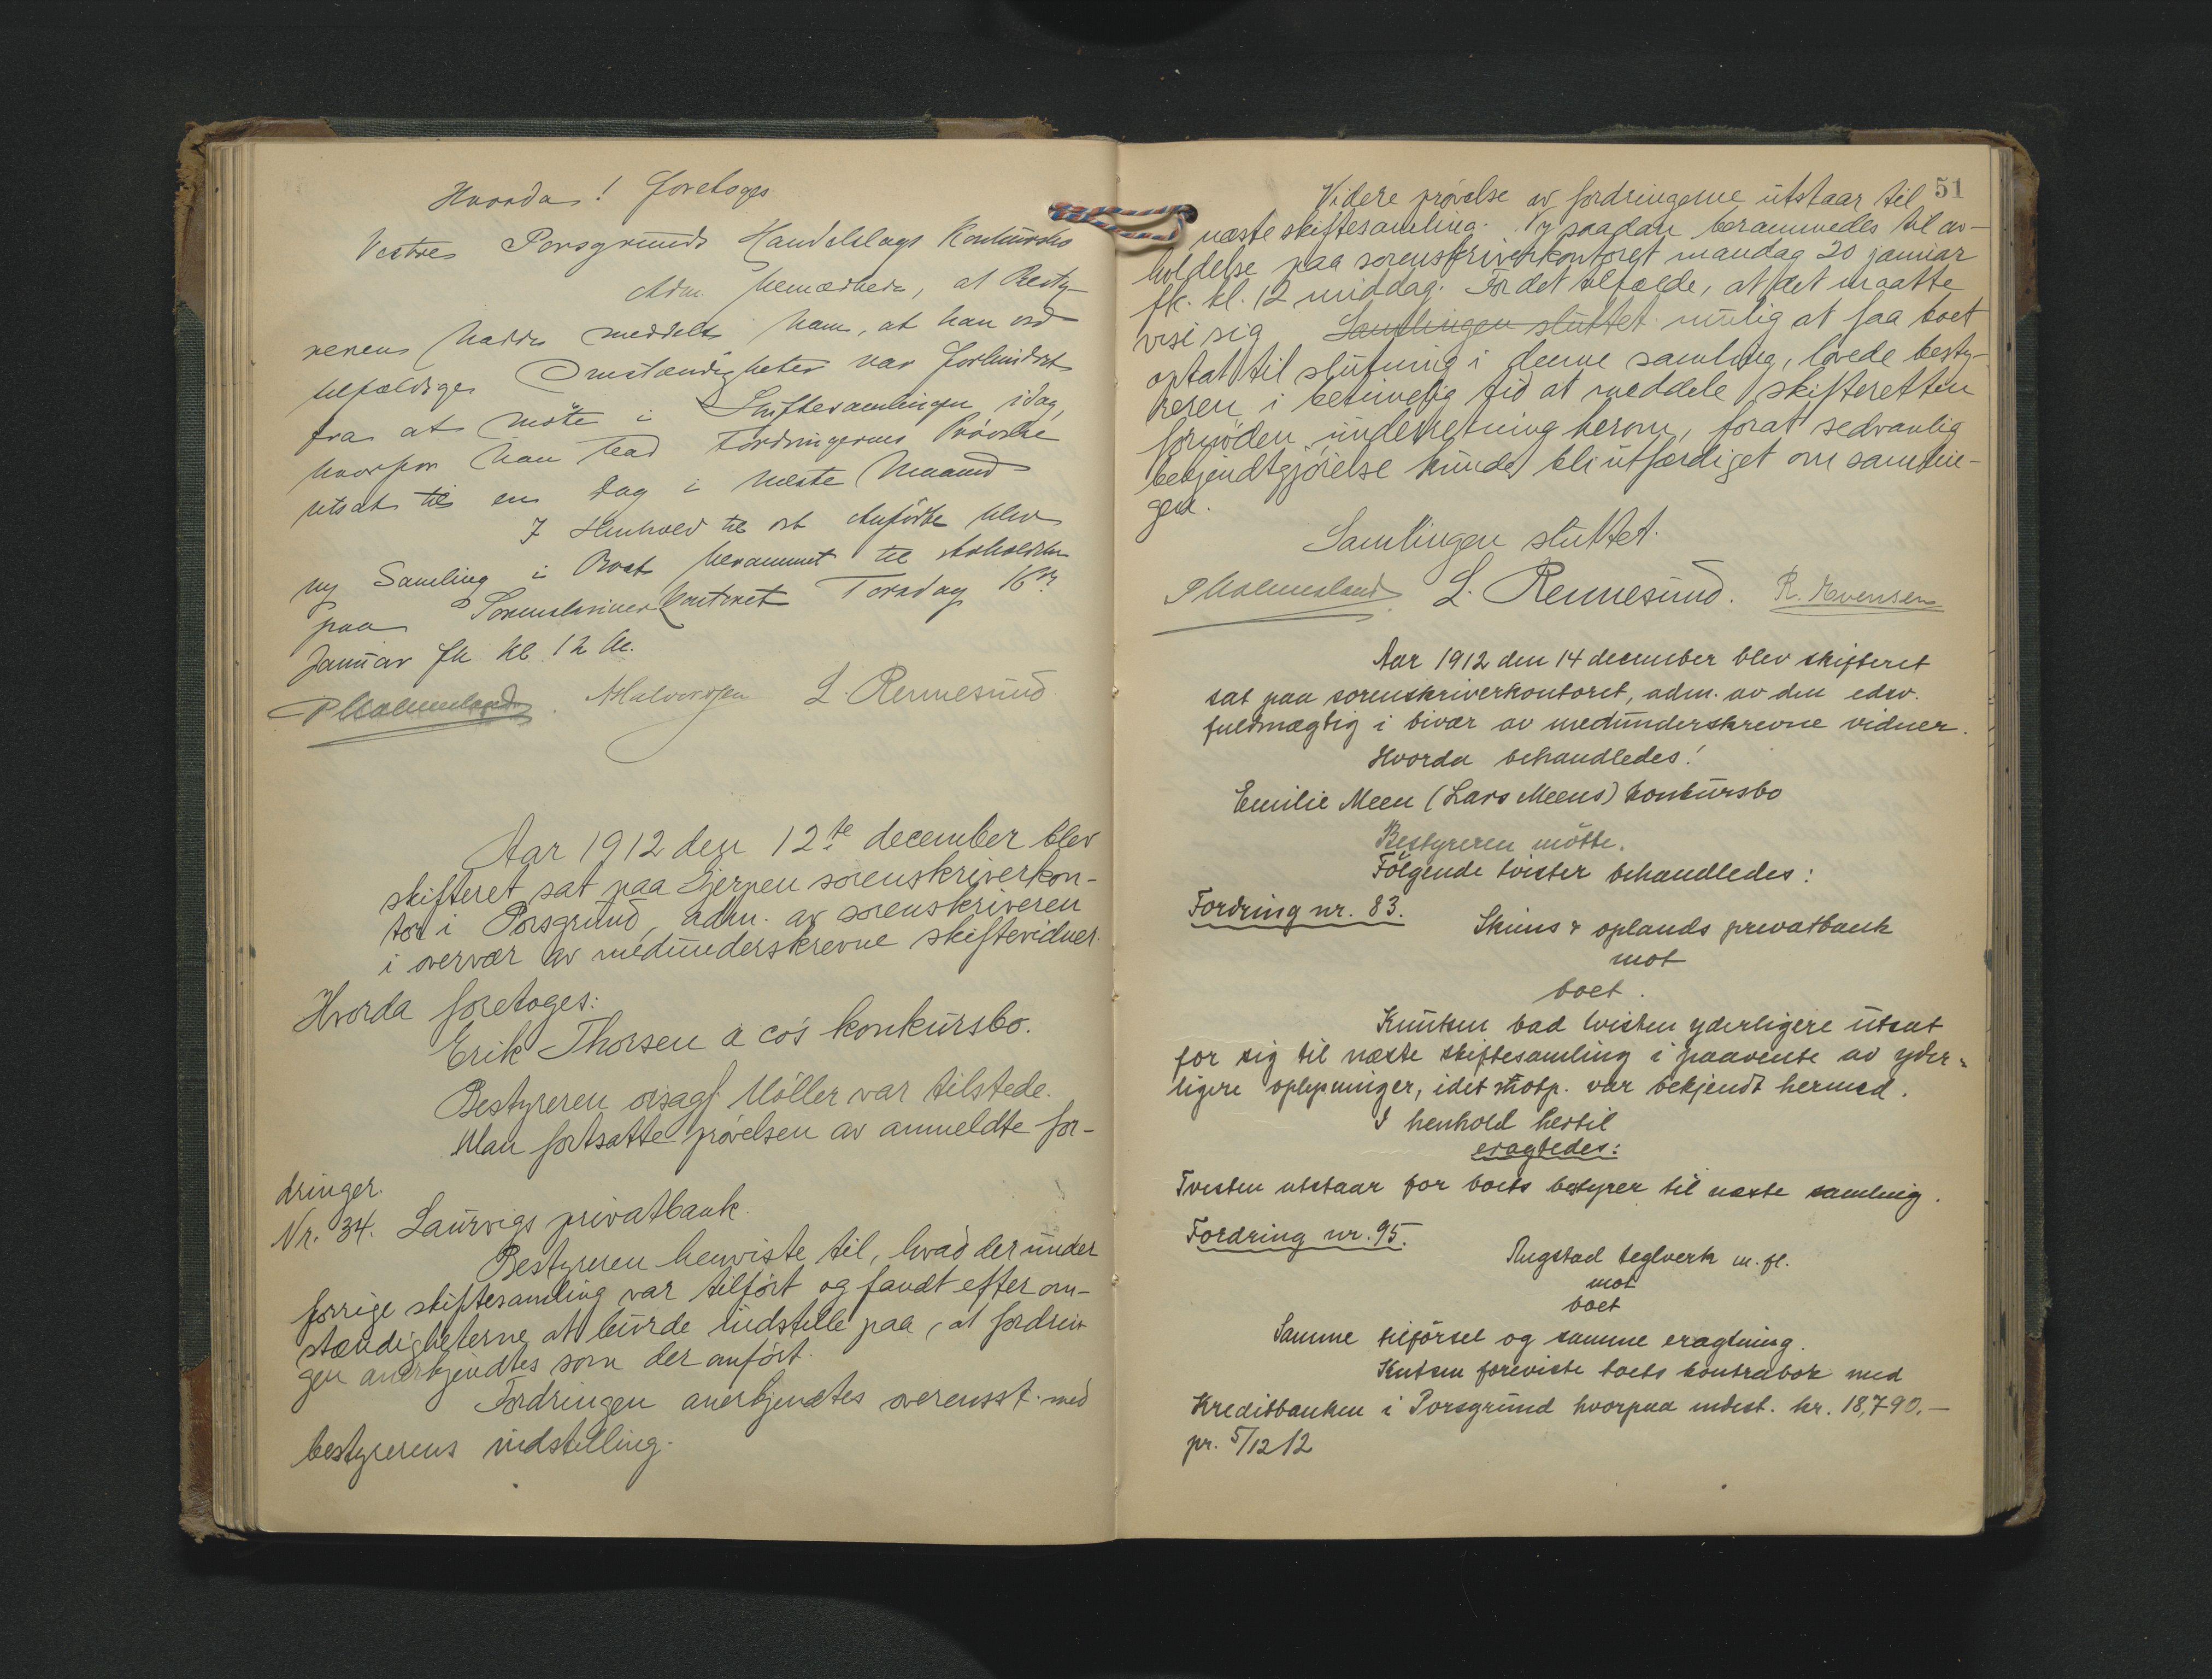 Hvorda! foretoges
Vestre Porsgrunds Handelslags Konkursbo
Adm. bemærkede, at Besty-
reren hadde meddelt ham, at han ved
tilfældige Omstændigheter var forhindret
fra at møte i Skiftesamlingen idag,
hvorfor han bad Fordringernes Prøvelse
utsat til en Dag i næste Maaned
I Henhold til det Anførte blev
ny Samling i Boet berammet til Avholdelse
paa Sorenskriverkontoret Torsdag 16de
Januar fk kl 12 M.
P Malmesland. AHalvorsen L. Rennesund.
Aar 1912 den 12te december blev
skifteret sat paa Gjerpen sorenskriverkon-
tor i Porsgrund, adm. av sorenskriveren
i overvær av medunderskrevne skiftevidner.
Hvorda foretoges:
Erik Thorsen a co's konkursbo.
Bestyreren o.r.sagf. Møller var tilstede.
Man fortsatte prøvelsen av anmeldte for-
dringer.
Nr. 34. Laurvigs privatbank.
Bestyreren henviste til, hvad der under
forrige skiftesamling var tilført og fandt efter om-
stændigheterne at burde indstille paa, at fordrin-
gen anerkjendtes som der anført.
Fordringen anerkjendtes overensst. med
bestyrerens indstilling.
51
Videre prøvelse av fordringerne utstaar til
næste skiftesamling. Ny saadan berammedes til av-
holdelse paa sorenskriverkontoret mandag 20 januar
fk. kl. 12 middag. For det tilfælde, at det maatte
vise sig Samlingen sluttet mulig at faa boet
optat til slutning i denne samling, lovede besty-
reren i betimelig tid at meddele skifteretten
fornøden underretning herom, forat sedvanlig
bekjendtgjørelse kunde bli utfærdiget om samlin-
gen.
Samlingen sluttet.
P Malmesland L. Rennesund. R. Evensen
Aar 1912 den 14 december blev skifteret
sat paa sorenskriverkontoret, adm. av den edsv.
fuldmægtig i bivær av medunderskrevne vidner.
Hvorda behandledes!
Emilie Meen (Lars Meens) konkursbo
Bestyreren møtte.
Følgende tvister behandledes:
Fordring nr. 83.
Skiens & oplands privatbank
mot
boet.
Knutsen bad tvisten yderligere utsat
for sig til næste skiftesamling i paavente av yder-
ligere oplysninger, idet motp. var bekjendt hermed.
I henhold hertil
eragtedes:
Tvisten utstaar for boets bestyrer til næste samling.
Fordring nr. 95.
Rugstad teglverk m. fl.
mot
boet
Samme tilførsel og samme eragtning.
Knutsen foreviste boets kontrabok med
Kreditbanken i Porsgrund hvorpaa indest. kr. 18,790.—
pr. 5/12 12